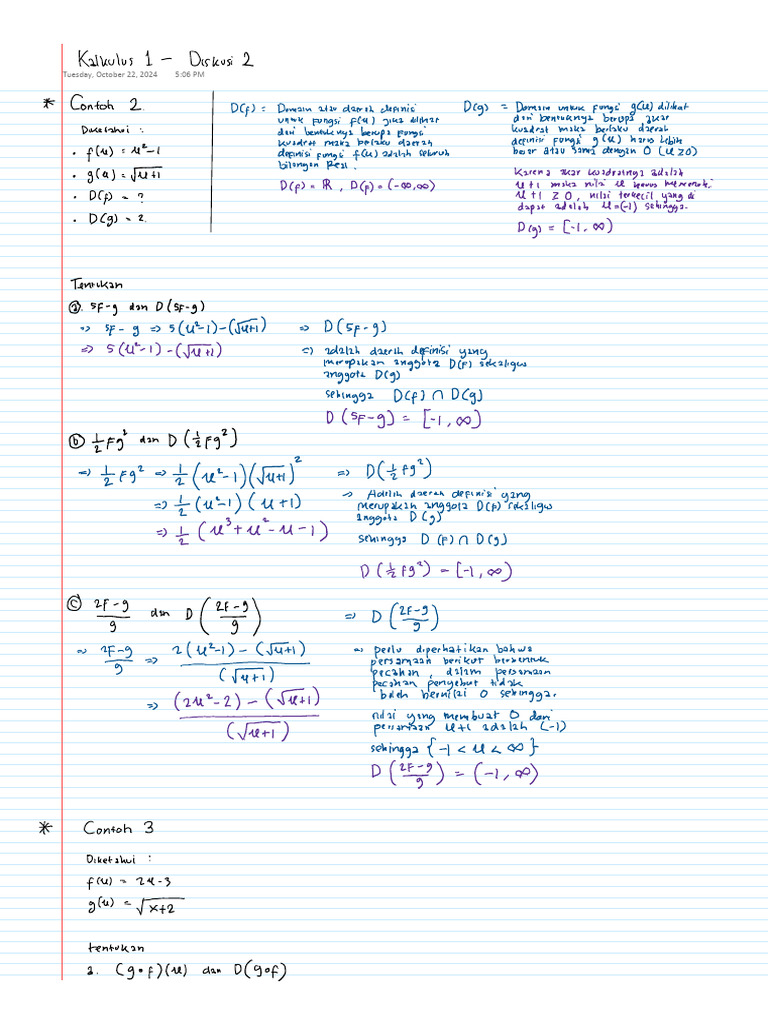 Kalkulus 1 - Diskusi 2
Tuesday, October 22, 2024 5:06 PM
* Contoh 2.
Diketahui :
• f(x) = x²-1
• g(x) = √(x+1)
• D(f) = ?
• D(g) = ?
D(f) = Domain atau daerah definisi
untuk fungsi f(x) jika dilihat
dari bentuknya berupa fungsi
kuadrat maka berlaku daerah
definisi fungsi f(x) adalah seluruh
bilangan Real.
D(f) = ℝ , D(f) = (-∞,∞)
D(g) = Domain untuk fungsi g(x) dilihat
dari bentuknya berupa akar
kuadrat maka berlaku daerah
definisi fungsi g(x) harus lebih
besar atau sama dengan 0 (x ≥ 0)
Karena akar kuadratnya adalah
x+1 maka nilai x harus memenuhi
x+1 ≥ 0, nilai terkecil yang di
dapat adalah x=(-1) sehingga.
D(g) = [-1, ∞)
Tentukan
a. 5f-g dan D(5f-g)
=> 5f-g => 5(x²-1)-(√(x+1))
=> 5(x²-1)-(√(x+1))
=> D(5f-g)
=> adalah daerah definisi yang
merupakan anggota D(f) sekaligus
anggota D(g)
sehingga D(f) ∩ D(g)
D(5f-g) = [-1, ∞)
b ½fg² dan D(½fg²)
=> ½fg² => ½(x²-1)(√(x+1))²
=> ½(x²-1)(x+1)
=> ½(x³+x²-x-1)
=> D(½fg²)
=> Adalah daerah definisi yang
merupakan anggota D(f) sekaligus
anggota D(g)
sehingga D(f) ∩ D(g)
D(½fg²) = [-1, ∞)
c (2f-g)/g dan D((2f-g)/g)
~ (2f-g)/g => (2(x²-1)-(√(x+1)))/(√(x+1))
=> ((2x²-2)-(√(x+1)))/(√(x+1))
=> D((2f-g)/g)
=> perlu diperhatikan bahwa
persamaan berikut berbentuk
pecahan, dalam persamaan
pecahan penyebut tidak
boleh bernilai 0 sehingga.
nilai yang membuat 0 dari
persamaan x+1 adalah (-1)
sehingga {-1 < x < ∞}
D((2f-g)/g) = (-1, ∞)
* Contoh 3
Diketahui :
f(x) = 2x-3
g(x) = √(x+2)
tentukan
a. (g∘f)(x) dan D(g∘f)